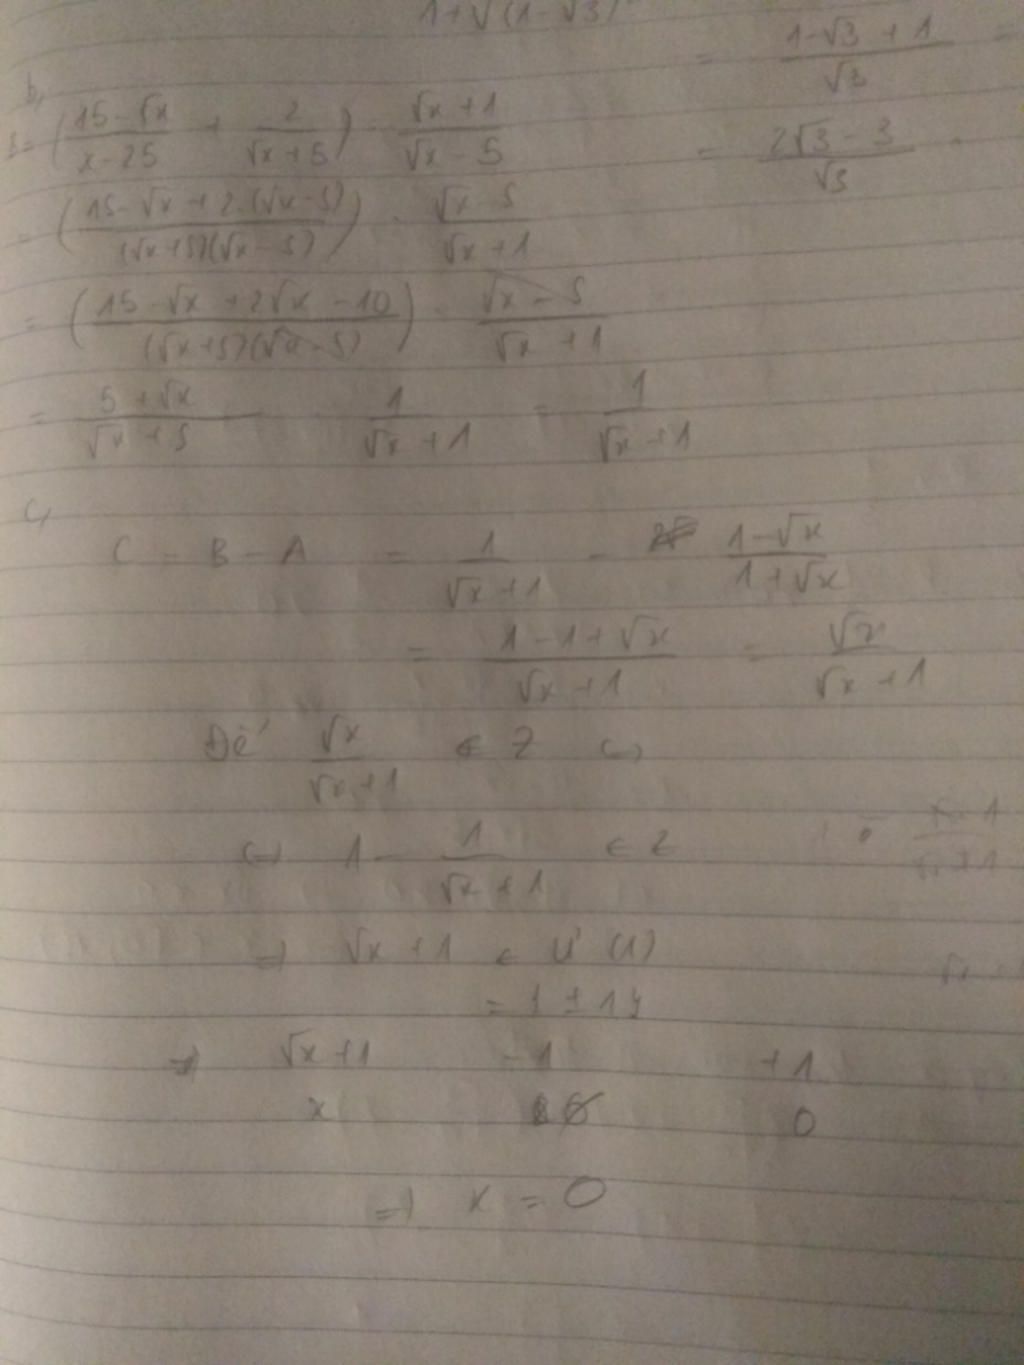 1+√(1-√3)
= (1-√3+1)/√3 =
b,
B = ((15-√x)/(x-25) + 2/(√x+5)) (√x+1)/(√x-5)
= (2√3-3)/√3
= ((15-√x+2.(√x-5))/((√x+5)(√x-5))) . (√x-5)/(√x+1)
= ((15-√x+2√x-10)/((√x+5)(√x-5))) . (√x-5)/(√x+1)
= (5+√x)/(√x+5) 1/(√x+1) = 1/(√x+1)
c,
C = B - A = 1/(√x+1) - (1-√x)/(1+√x)
= (1-1+√x)/(√x+1) = √x/(√x+1)
Để √x/(√x+1) ∈ Z (=)
(=) 1 - 1/(√x+1) ∈ Z
=) √x+1 ∈ Ư (1)
= {±1}
=> √x+1 -1 +1
x 0
=) x = 0